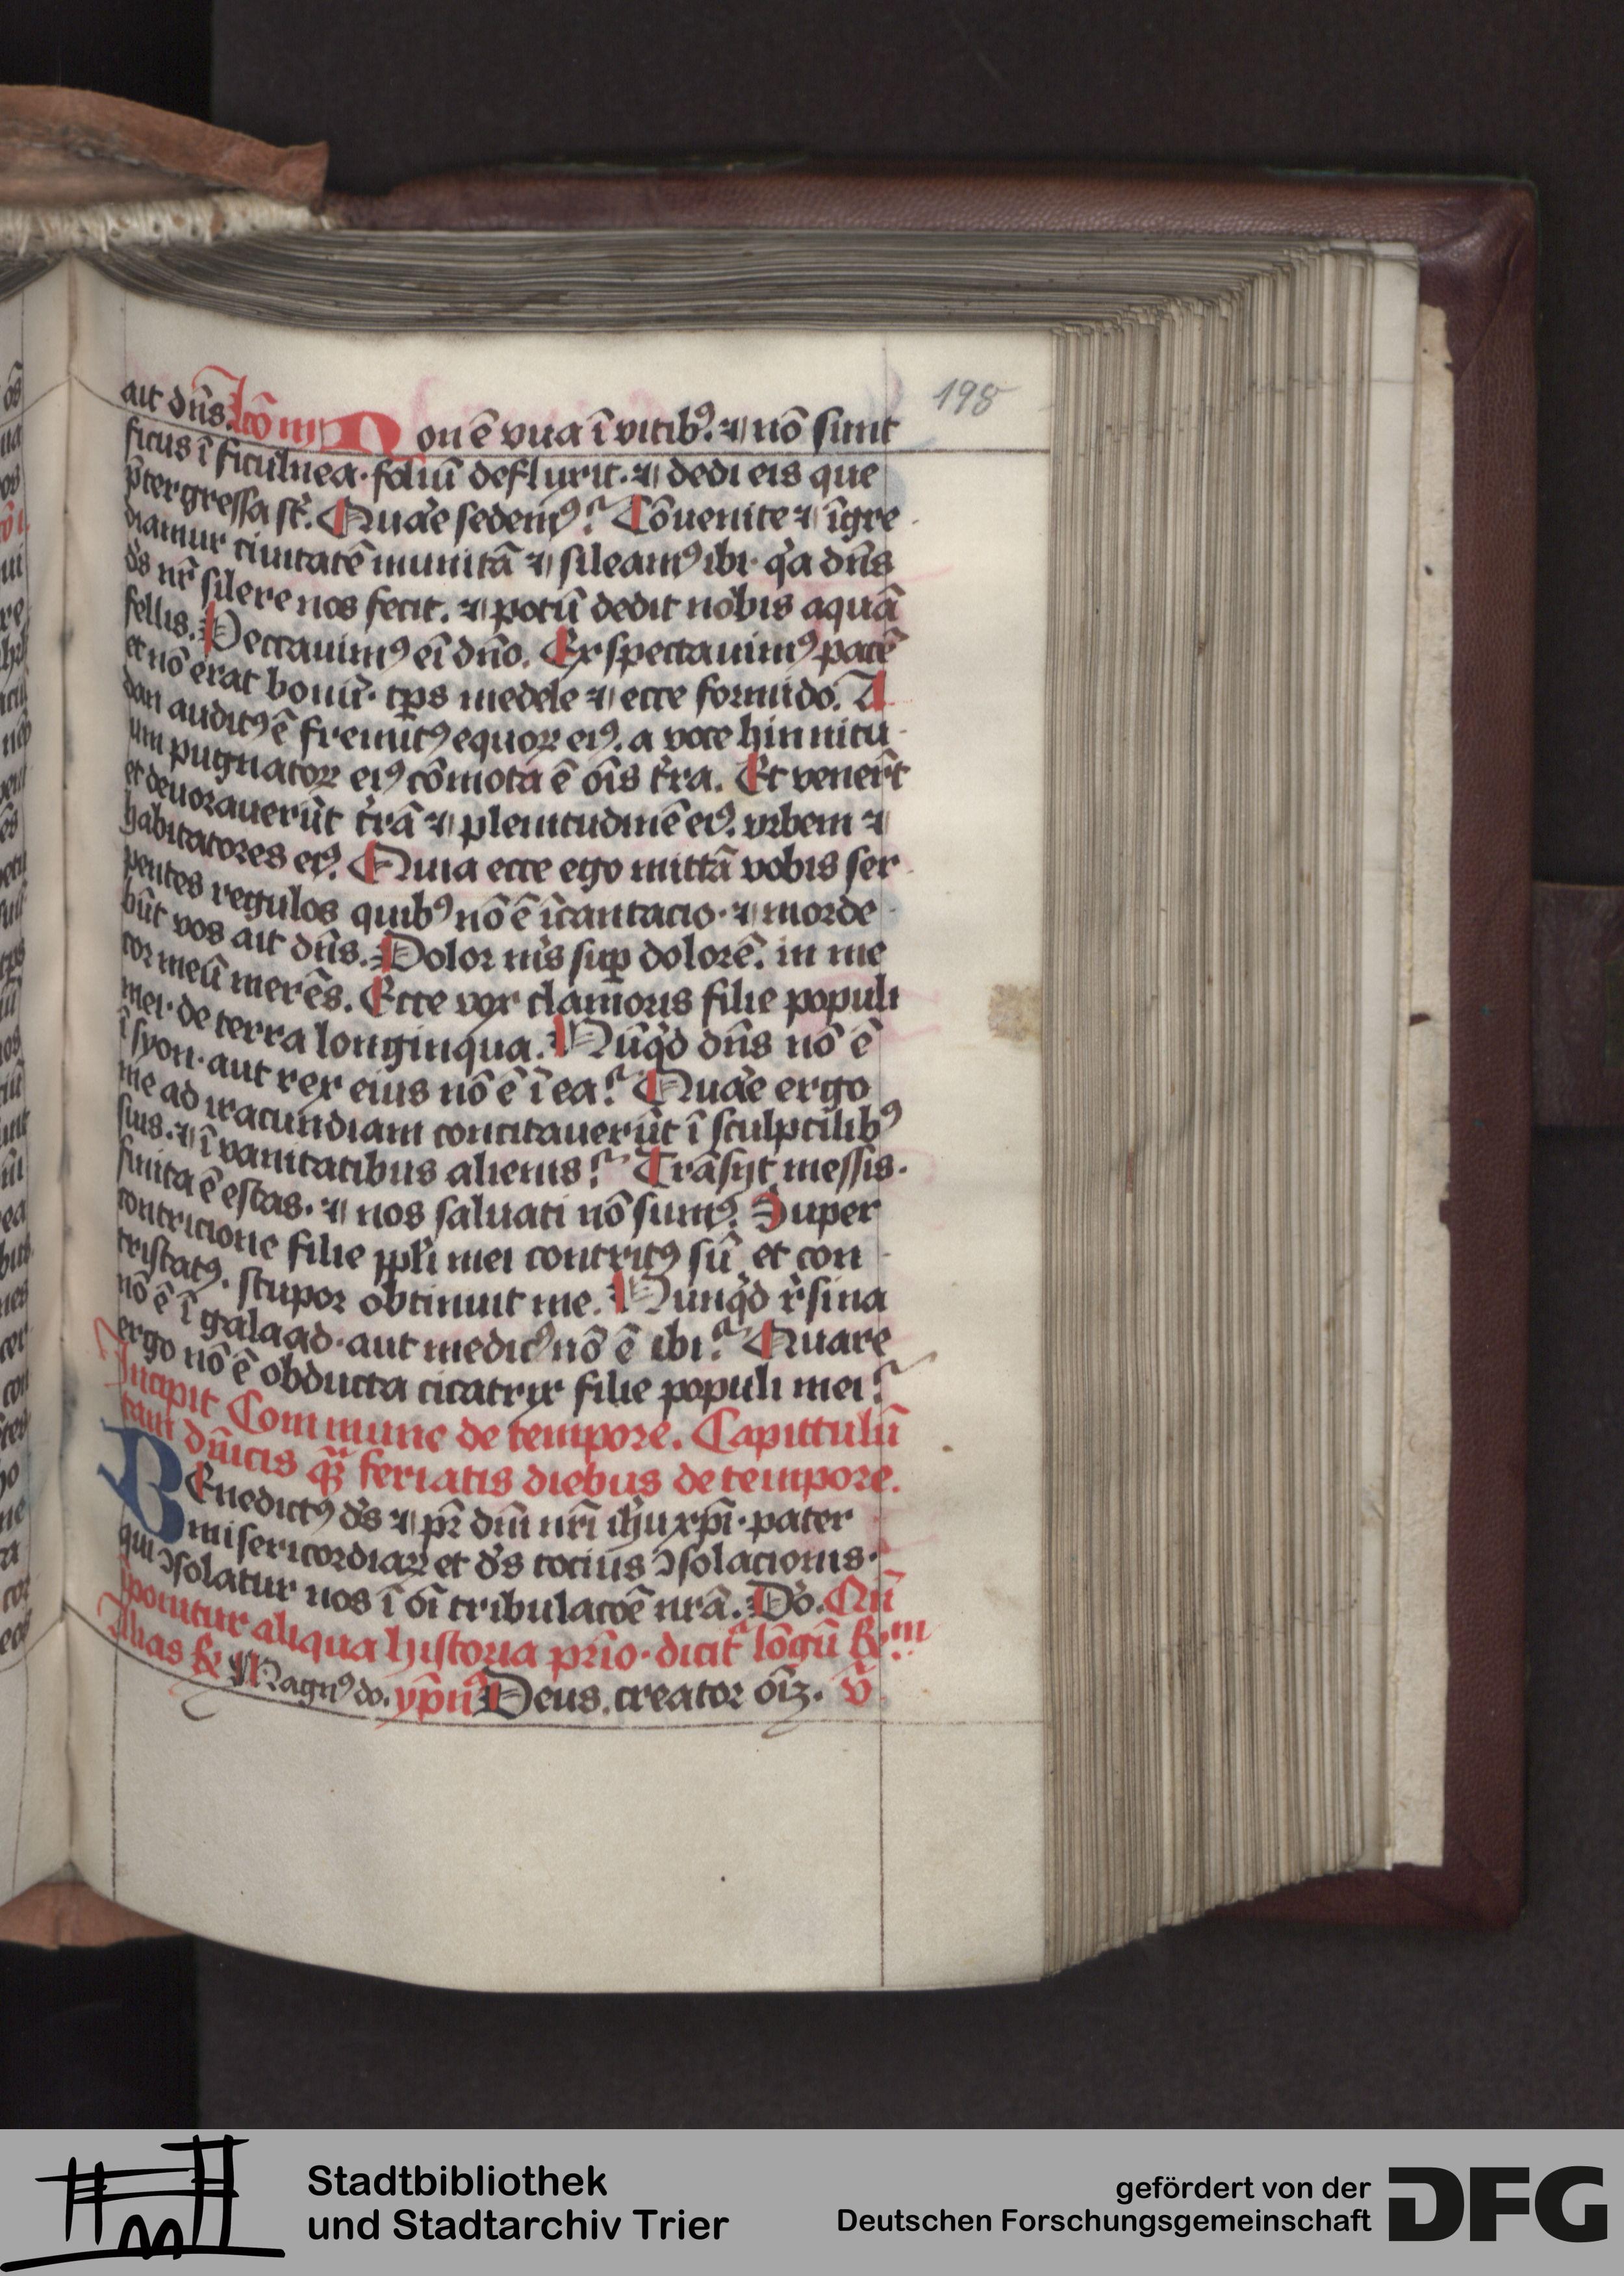 198
ait dn̄s. Lc̄o iij Non ē vua ī vitibꝰ. ⁊ nō sunt
ficus ī ficulnea. foliū defluxit. ⁊ dedi eis que
p̄tergressa st̄. Quar̄e sedemꝰ? Cōuenite ⁊ īgre
diamur ciuitatē munitā ⁊ sileamꝰ ibi. qͥa dn̄s
ds̄ nr̄ silere nos fecit. ⁊ potū dedit nobis aquā
fellis. Peccauimꝰ eī dn̄o. Exspectauimꝰ pacē
et nō erat bonū. tp̄s medele ⁊ ecce formido. A
dan auditꝰ ē fremitꝰ equoꝝ eiꝰ. a voce hinnitu
um pugnatoꝝ eiꝰ cōmota ē oīs t̄ra. Et venerūt
et deuorauerūt t̄rā ⁊ plenitudinē eiꝰ. vrbem ⁊
habitatores eiꝰ. Quia ecce ego mittā vobis ser
pentes regulos quibꝰ nō ē īcantacio. ⁊ morde
būt vos ait dn̄s. Dolor mīs suꝑ dolorē. in me
cor meū merēs. Ecce vox clamoris filie populi
mei de terra longinqua. Nūqͥd dn̄s nō ē
ī syon. aut rex eius nō ē ī ea? Quar̄e ergo
me ad iracundiam concitauerūt ī sculptilibꝰ
suis. ⁊ ī vanitatibus alienis? Trāsijt messis.
finita ē estas. ⁊ nos saluati nō sumꝰ. Super
contricione filie ppl̄i mei contritꝰ sū et con
tristatꝰ. stupor obtinuit me. Nunqͥd r̄sina
nō ē ī galaad. aut medicꝰ nō ē ibi? Quare
ergo nō ē obducta cicatrix filie populi mei?
Incipit Commune de tempore. Capittulū
tam dn̄icis qͣ̄ feriatis diebus de tempore.
Benedictꝰ ds̄ ⁊ pr̄ dn̄i nr̄i ih̄u xp̄i. pater
misericordiaꝝ et ds̄ tocius ꝯsolacionis.
qui ꝯsolatur nos ī oī tribulacōe nr̄a. Dō. Qn̄
ponitur aliqua historia prīo. dicit᷑ lōgū R̄m
Alias R̄ Magnꝰ do. ypn̄ꝰ Deus creator oīꝫ. v̄
Stadtbibliothek
und Stadtarchiv Trier
gefördert von der
Deutschen Forschungsgemeinschaft
DFG